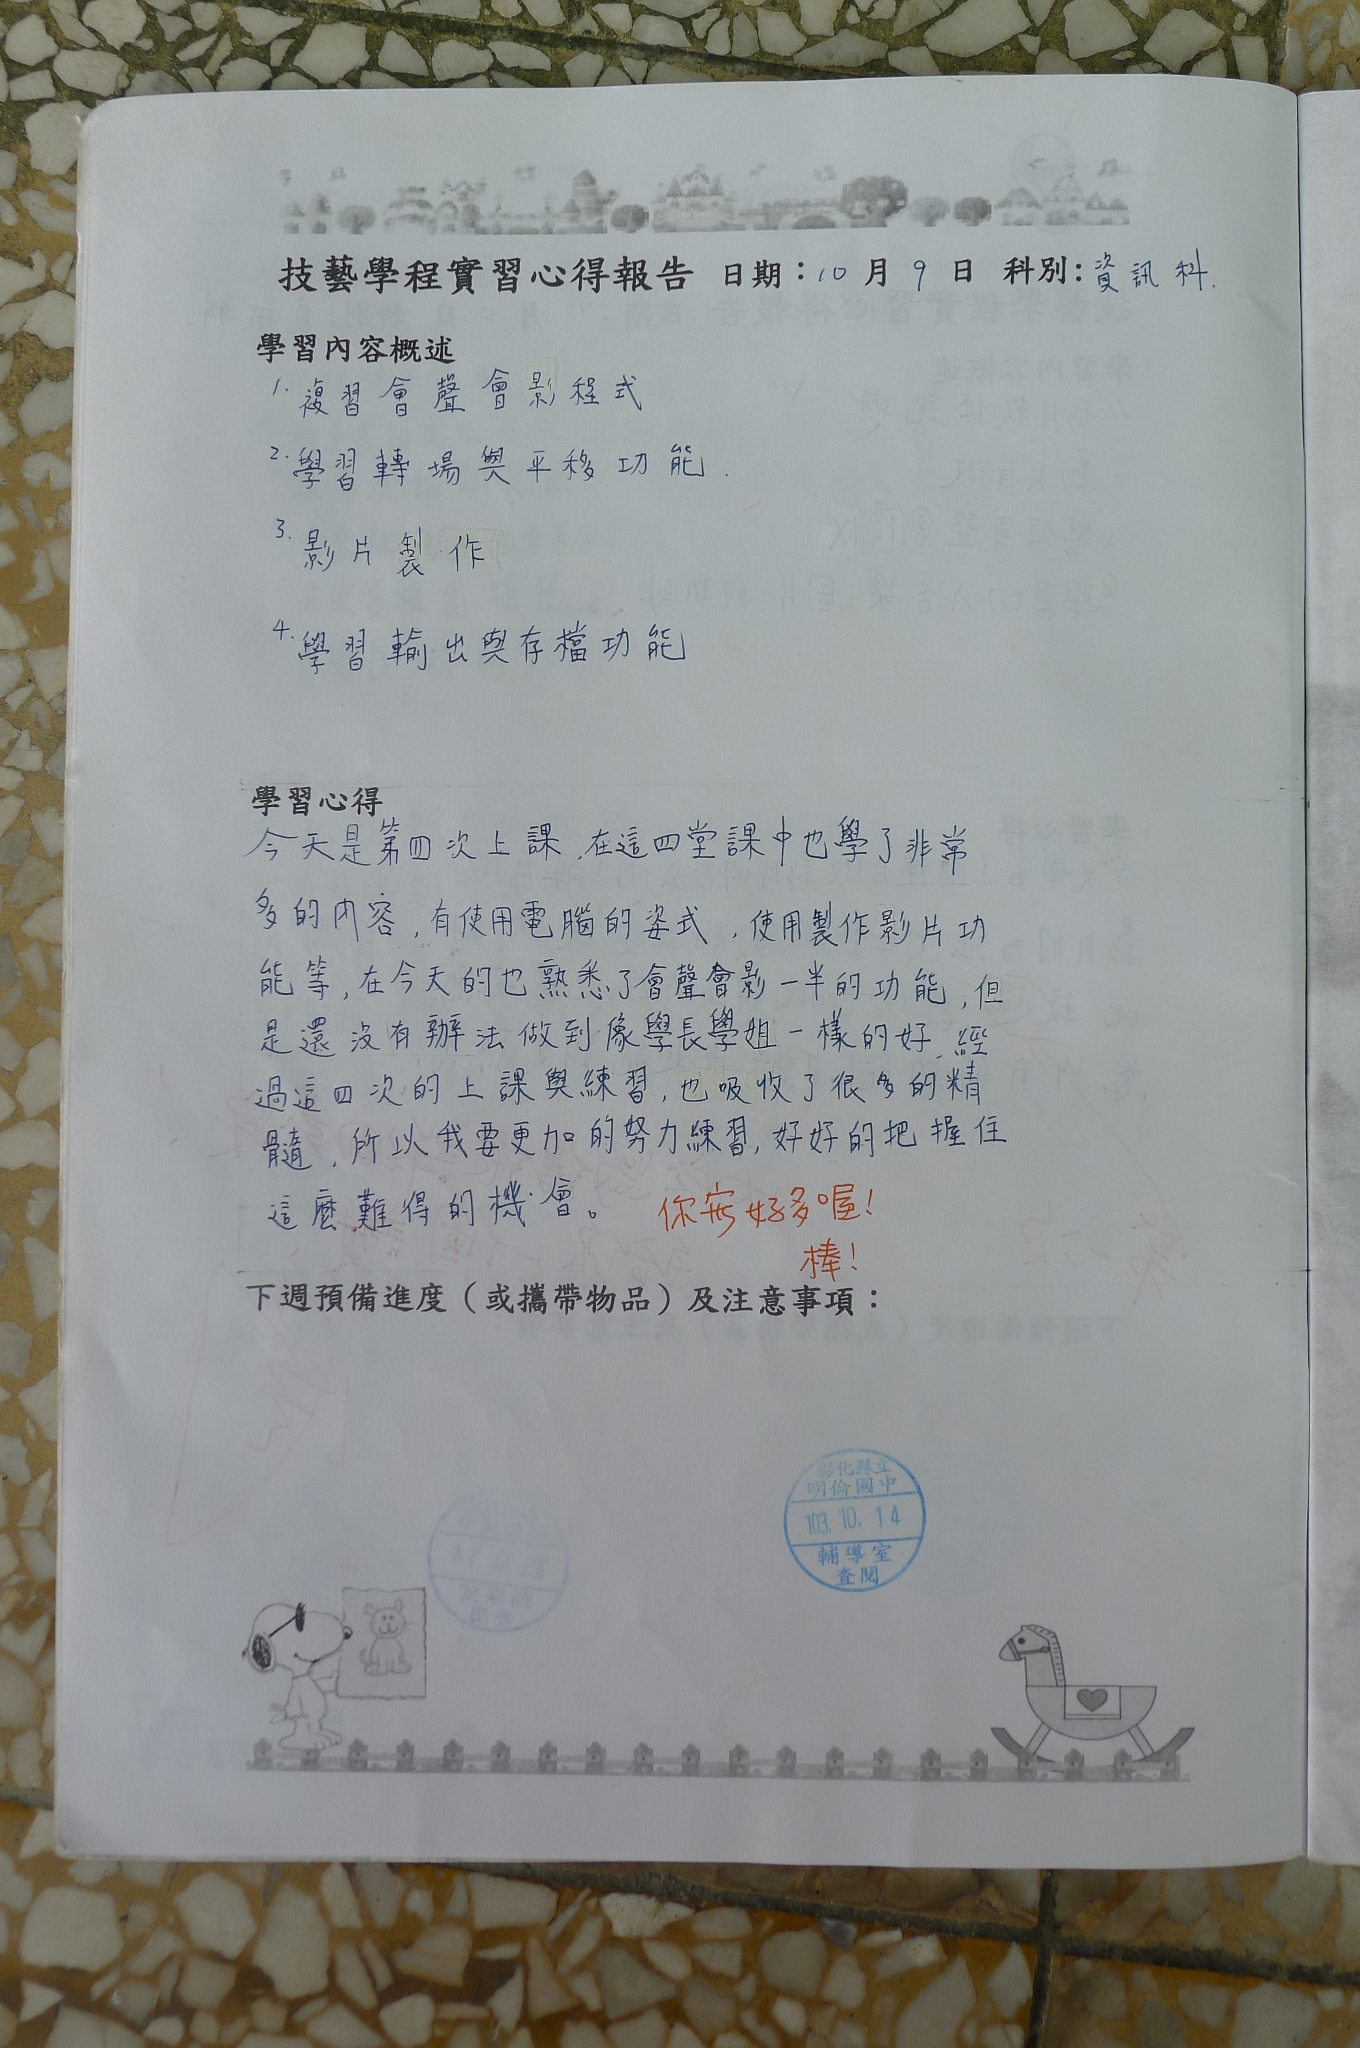 技藝學程實習心得報告 日期：10月9日 科別：資訊科.
學習內容概述
1. 複習會聲會影程式
2. 學習轉場與平移功能.
3. 影片製作
4. 學習輸出與存檔功能
學習心得
今天是第四次上課,在這四堂課中也學了非常
多的內容,有使用電腦的姿式,使用製作影片功
能等,在今天的也熟悉了會聲會影一半的功能,但
是還沒有辦法做到像學長學姐一樣的好,經
過這四次的上課與練習,也吸收了很多的精
髓,所以我要更加的努力練習,好好的把握住
這麼難得的機會。
你安好多喔!
棒!
下週預備進度（或攜帶物品）及注意事項：
彰化縣立
明倫國中
103.10.14
輔導室
查閱